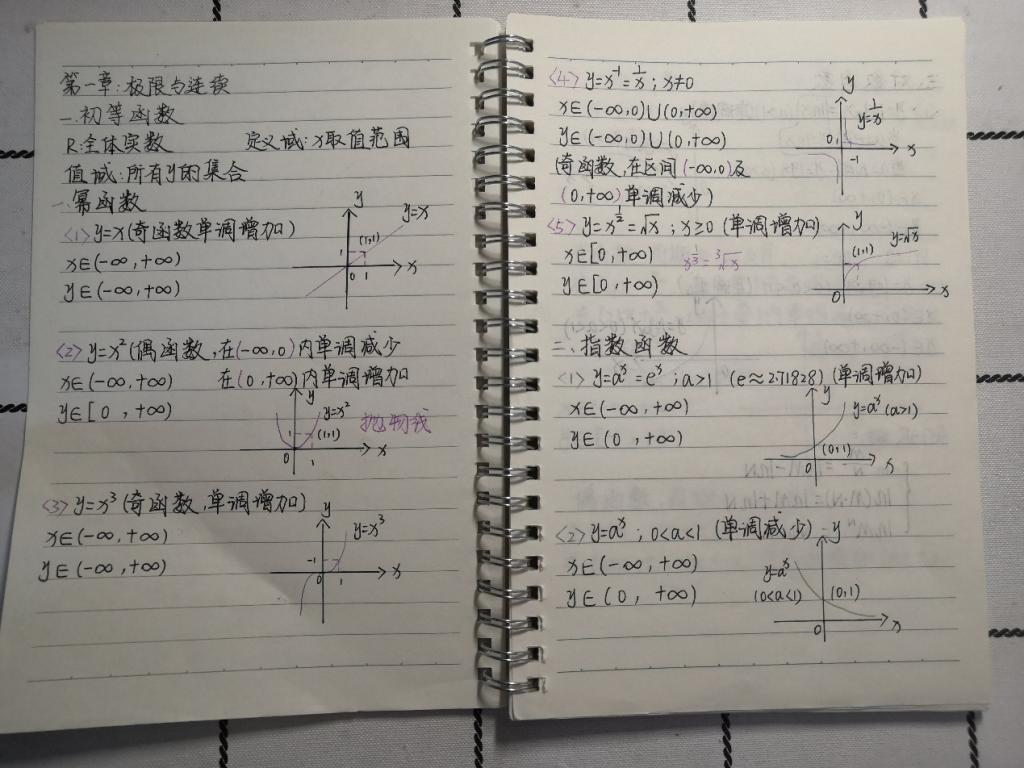 第一章:极限与连续
一.初等函数
R:全体实数 定义域:x取值范围
值域:所有y的集合
一、幂函数
<1> y=x(奇函数单调增加)
x∈(-∞,+∞)
y∈(-∞,+∞)
y
y=x
(1,1)
1
0 1 x
<2> y=x²(偶函数,在(-∞,0)内单调减少
x∈(-∞,+∞) 在(0,+∞)内单调增加
y∈[0,+∞)
y
y=x²
抛物线
1 (1,1)
0 1 x
<3> y=x³(奇函数,单调增加)
x∈(-∞,+∞)
y∈(-∞,+∞)
y
y=x³
-1
0 1 x
<4> y=x⁻¹=1/x;x≠0
x∈(-∞,0)∪(0,+∞)
y∈(-∞,0)∪(0,+∞)
(奇函数,在区间(-∞,0)及
(0,+∞)单调减少)
y
y=1/x
0 -1 x
<5> y=x^(1/2)=√x;x≥0(单调增加)
x∈[0,+∞) x^(1/3)=³√x
y∈[0,+∞)
y
y=√x
(1,1)
0 x
二、指数函数
<1> y=aˣ=eˣ;a>1(e≈2.71828)(单调增加)
x∈(-∞,+∞)
y∈(0,+∞)
y
y=aˣ(a>1)
(0,1)
0 x
<2> y=aˣ;0<a<1(单调减少)
x∈(-∞,+∞)
y∈(0,+∞)
y
y=aˣ
(0<a<1) (0,1)
0 x